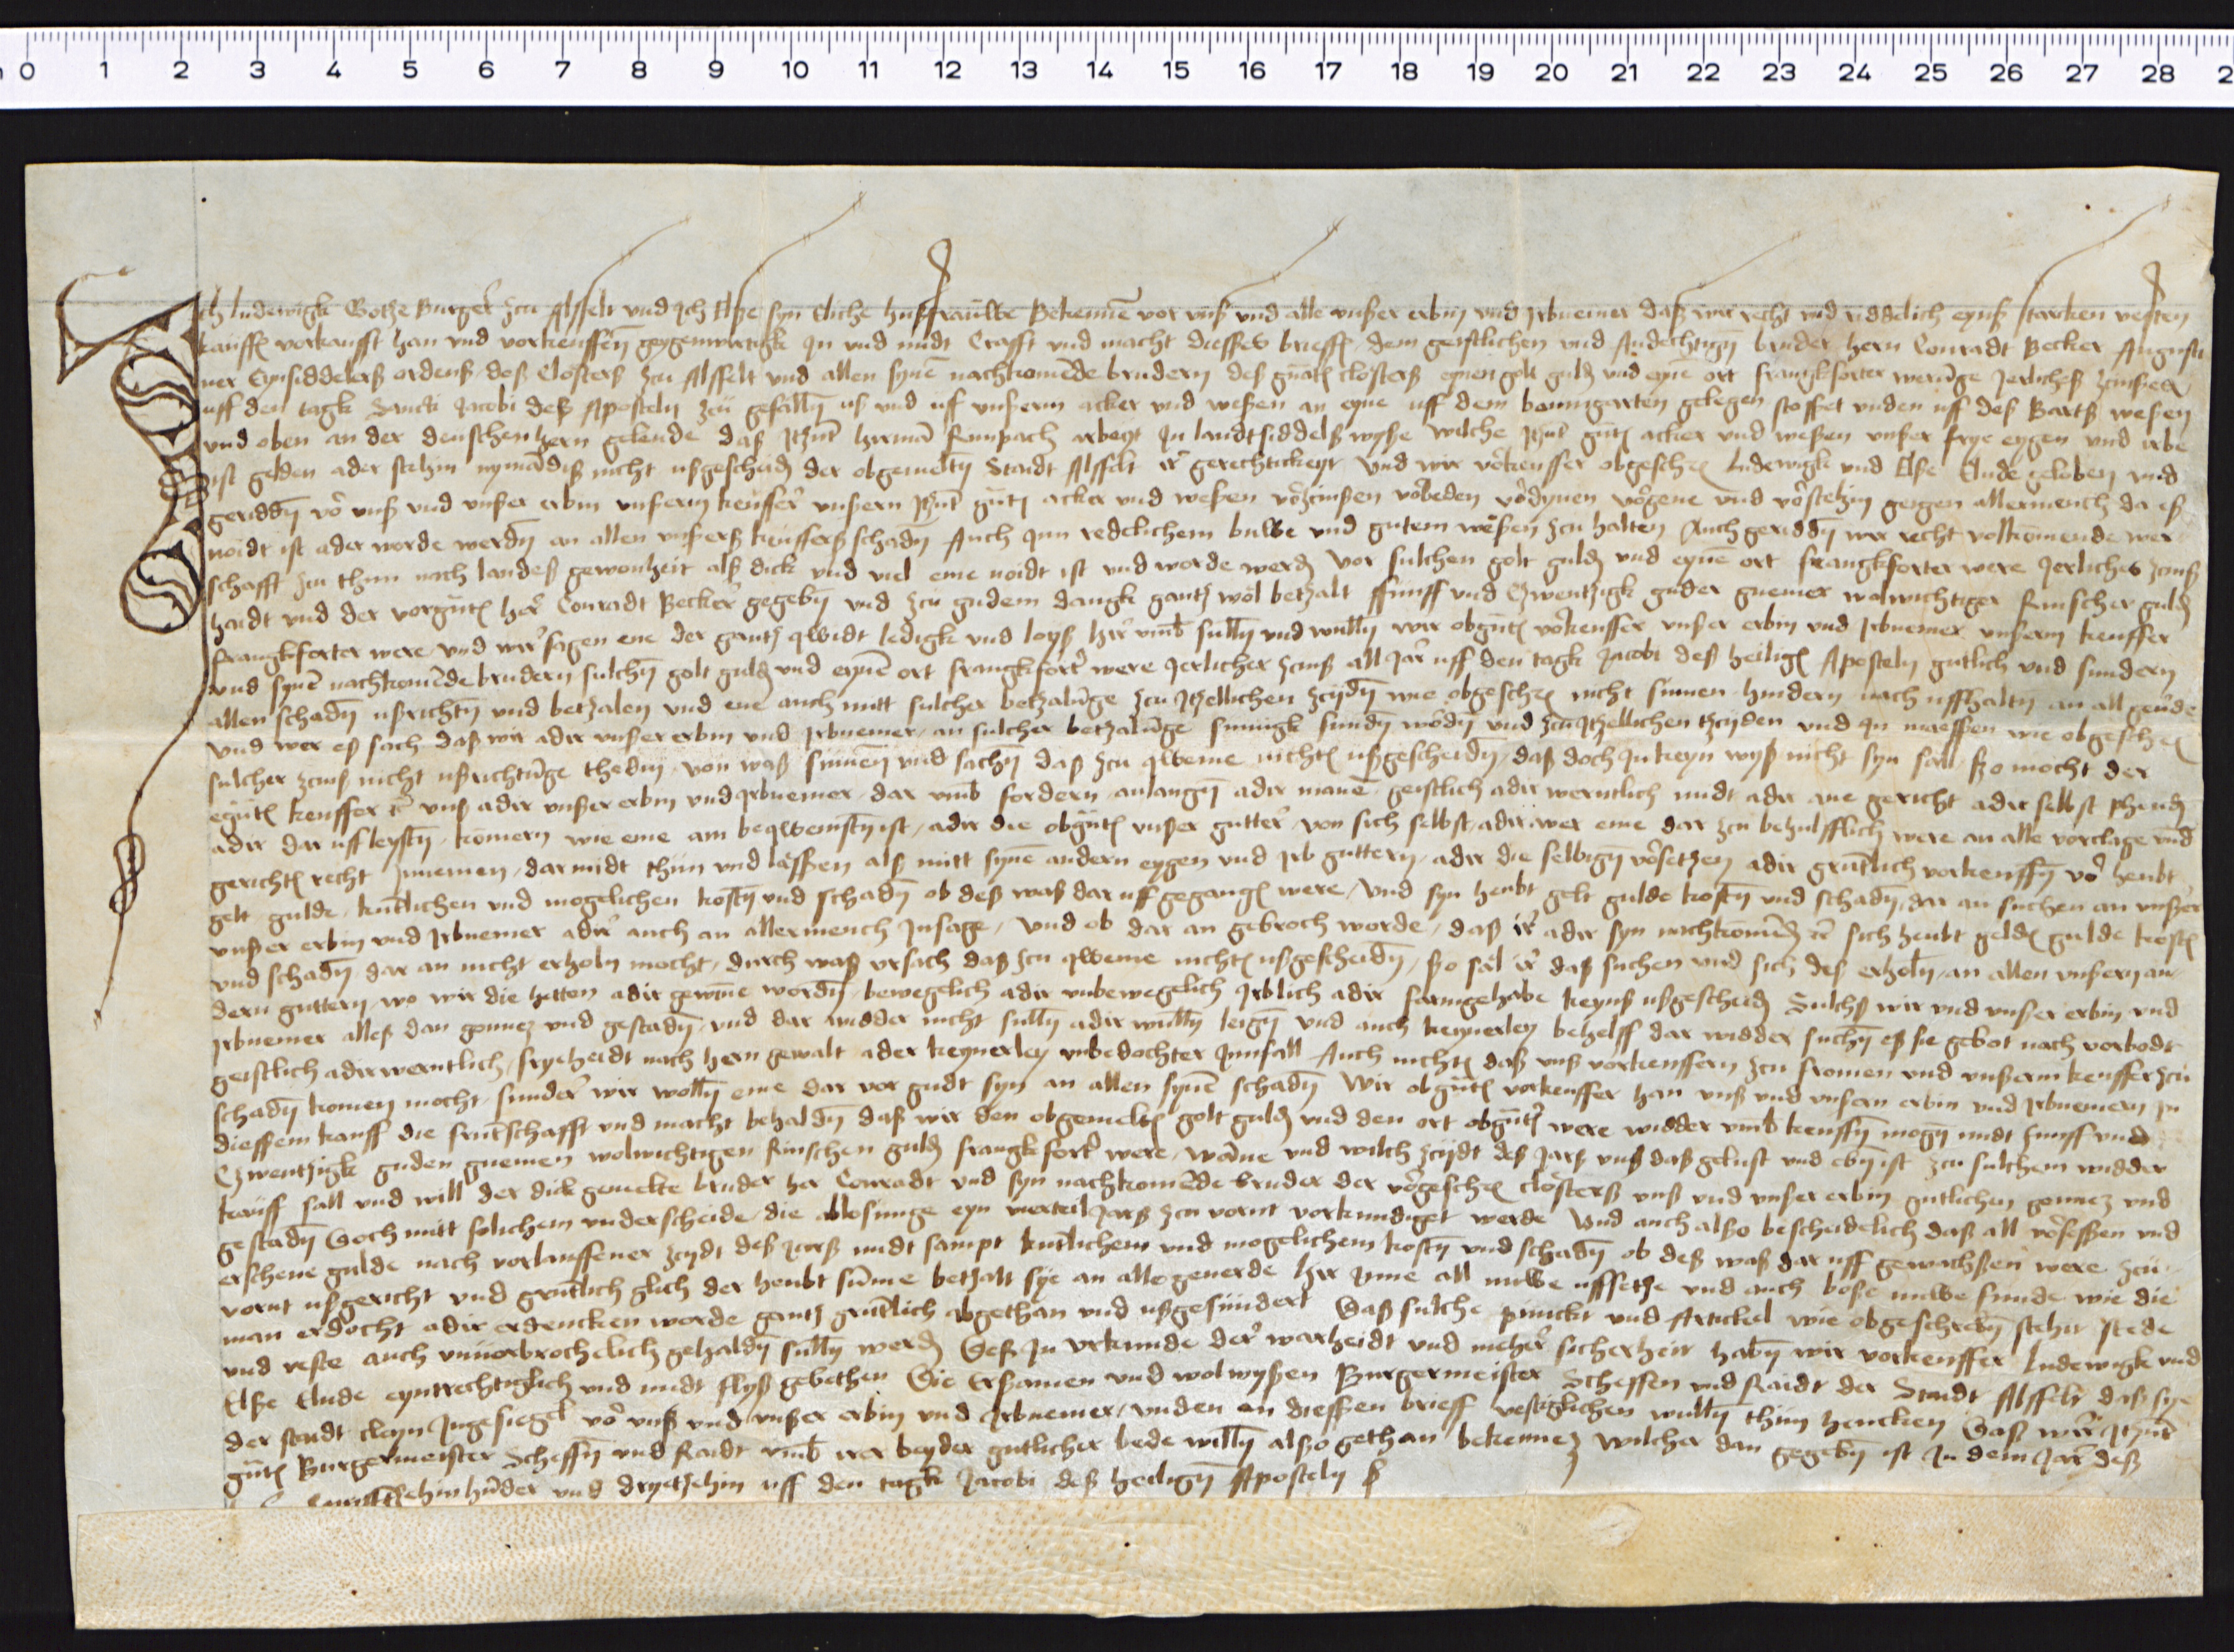 0 1 2 3 4 5 6 7 8 9 10 11 12 13 14 15 16 17 18 19 20 21 22 23 24 25 26 27 28 2
Ich Ludewigk Gotze Burger zcu Alsfelt und Ich Elße syn Eliche hußfrauwe Bekennē vor unß und alle unßer erbin und Irbnemer daß wir recht und riddelich eynß starcken vesten
kauffs vorkaufft han und vorkeuffen geygenwirtigk In und midt Crafft und macht diesses brieffs dem geistlichen und Andechtigen bruder hern Conradt Becker Augusti
ner Eynsiddelerß ordenß deß Closterß zcu Alsfelt und allen synē nachkomēde brudern deß gnātē closterß eynen golt guldē und eynē ort frangkforter werūge Jerlicheß zcinßes
uff den tagk Sancti Jacobi deß Aposteln zcu gefalln uß und uff unßerm acker und weßen an eyne uff dem baumgarten gelegen stosset unden uff deß Bartß weßen
und oben an der deuschen hern gelende daß Itzūt hermā Rumpach arbeyt In landtsiddelß wyße wilche Itzūt gūtē acker und weßen unßer frye eygen und irbe
ist gelden ader stehin nymādiß nicht ußgescheidē der obgemeltē Staidt Alsfelt ir gerechtickeyt und wir vorkeuffer obgeschrē Ludewigk und Elße Elude geloben und
geriddē vor unß und unßer erbin unßerm keuffer unßern Itzūt gūtē acker und weßen vorzcinßen vorbeden vordynen vorgene und vorstehin geigen allermench da eß
noidt ist ader worde werdē an allen unßerß keufferß schadē Auch Inn redelichem buwe und gutem weßen zcu halten Auch geriddē wir recht vollkomende wer
schafft zcu thun nach landeß gewonheit alß dick und viel eme noidt ist und worde werdē Vor sulchen golt guldē und eynē ort frangkforter were Jerlicheß zcinß
haidt und der vorgūtē her Conradt Becker gegebē und zcu gudem dangk gantz wol betzalt funff und Czwentzigk guder gnemer wolwichtiger Rinscher guldē
frangkforter were und wir sagen ene der gantz qwidt ledigk und loyß hir umb sullē und wullē wir obgūtē vorkeuffer unßer erbin und Irbnemer unßerm keuffer
und synē nachkomēde brudern sulchē golt guldē und eynē ort frangkforter were Jerlicher zcinß all Jar uff den tagk Jacobi deß heiligē Aposteln gutlich und sundern
allen schadē ußrichtē und betzalen und ene auch mitt sulcher betzalūge zcu Itzellichen zcydē wie obgeschrē nicht sumen hindern nach uffhaltē an all geūde
Und wer eß sach daß wir adir unßer erbin und Irbnemer an sulcher betzalūge sumigk fundē wordē und zcu Itzellichen tzcyden und In maeßen wie obgeschrē
sulcher zcinß nicht ußrichtūge thedin von waß sinnen und sachē daß zcu qweme nichtē ußgescheidē daß doch In keyn wyß nicht syn sal ßo mocht der
egūtē keuffer unß adir unßer erbin und Irbnemer dar umb fordern anlangē adir manē geistlich adir werntlich midt adir ane gericht adir selbst phendē
adir dar uff leystē komern wie eme am beqwemstē ist adir die obgūtē unßer gutter von sich selbst adir wer eme dar zcu behulfflich were an alle vorclage und
gerichtē recht Innemen dar midt thun und laßen alß mitt synē andern eygen und Irb guttern adir die selbigē vorsetzen adir grūtlich vorkeuffē vor heubt
gelt gulde kūtlichen und mogelichen kostē und schadē ob deß waß dar uff gegangē were Und syn heubt gelt gulde kostē und schadē dar an suchen an unßer
unßer erbin und Irbnemer adir auch an allermench Insage Und ob dar an gebroch worde daß ir adir syn nachkomēdē sich heubt geldē gulde kostē
und schadē dar an nicht erholn mocht durch waß ursach daß zcu qweme nichtē ußgescheidē ßo sal ir daß suchen und sich deß erholē an allen unßern an
dern guttern wo wir die hetten adir gewinne wordē bewegelich adir unbewegelich Irblich adir farnigehabe keynß ußgescheidē Sulchß wir und unßer erbin und
Irbnemer alleß dan gonnē und gestadē und dar widder nicht sullē adir wullē leigē und auch keynerley behelff dar widder suchē eß sie gebot nach vorbodt
geistlich adir werntlich fryeheidt nach hern gewalt ader keynerley unbedochter Innfall Auch nichtē daß unß vorkeuffern zcu fromen und unßerm keuffer zcu
schadē komen mocht sunder wir wollē eme dar vor gudt syn an allen synē schadē Wir obgūtē vorkeuffer han unß und unßern erbin und Irbnemern In
diessem kauff die frūtschafft und macht behaldē daß wir den obgemeltē golt guldē und den ort obgūtē were widder umb keuffē mogē midt funff und
Czwentzigk guden gnemen wolwichtigen Rinschen guldē frangkforter were wāne und wilch zcydt deß Jarß unß daß gelust und ebē ist zcu sulchem widder
kauff sall und will der dick gemelte bruder her Conradt und syn nachkomēde bruder der vorgeschrē closterß unß und unßer erbin gutlichen gonnē und
gestadē Doch mitt solichem underscheide die ablosunge eyn virteil Jarß zcu vornt vorkundiget werde Und auch alßo bescheidelich daß all vorseßen und
erschene gulde nach vorlauffener zcydt deß Jarß midt sampt kūtlichem und mogelichem kostē und schadē ob deß waß dar uff gewachßen were zcu
vornt ußgericht und grūtlich glich der heubt sūme betzalt sye an alle generde Hir Inne all nuwe uffsetze und auch boße nuwe funde wie die
man erdocht adir erdencken worde gantz grūtlich abgethan und ußgesundert Daß sulche punckt und Artickel wie obgeschrebē stehit stede
und veste auch unvorbrochelich gehaldē sullē werdē Deß In urkunde der warheidt und meher sicherheit habē wir vorkeuffer Ludewigk und
Elße Elude eyntrechtiglich und midt flyß gebethen Die Erßamen und wolwyßen Burgermeister Scheffen und Raidt der Staidt Alsfelt daß sye
der staidt cleyn Ingesiegel vor unß und unßer erbin und Irbnemer unden an diessen brieff vestiglichen wullē thun hencken Daß wir Itzūt
gūtē Burgermeister Scheffē und Raidt umb irer beyder gutlicher bede willē alßo gethan bekennē wilcher dan gegebē ist In dem Jar deß
hunder und drytzehin uff den tagk Jacobi deß heiligē Aposteln